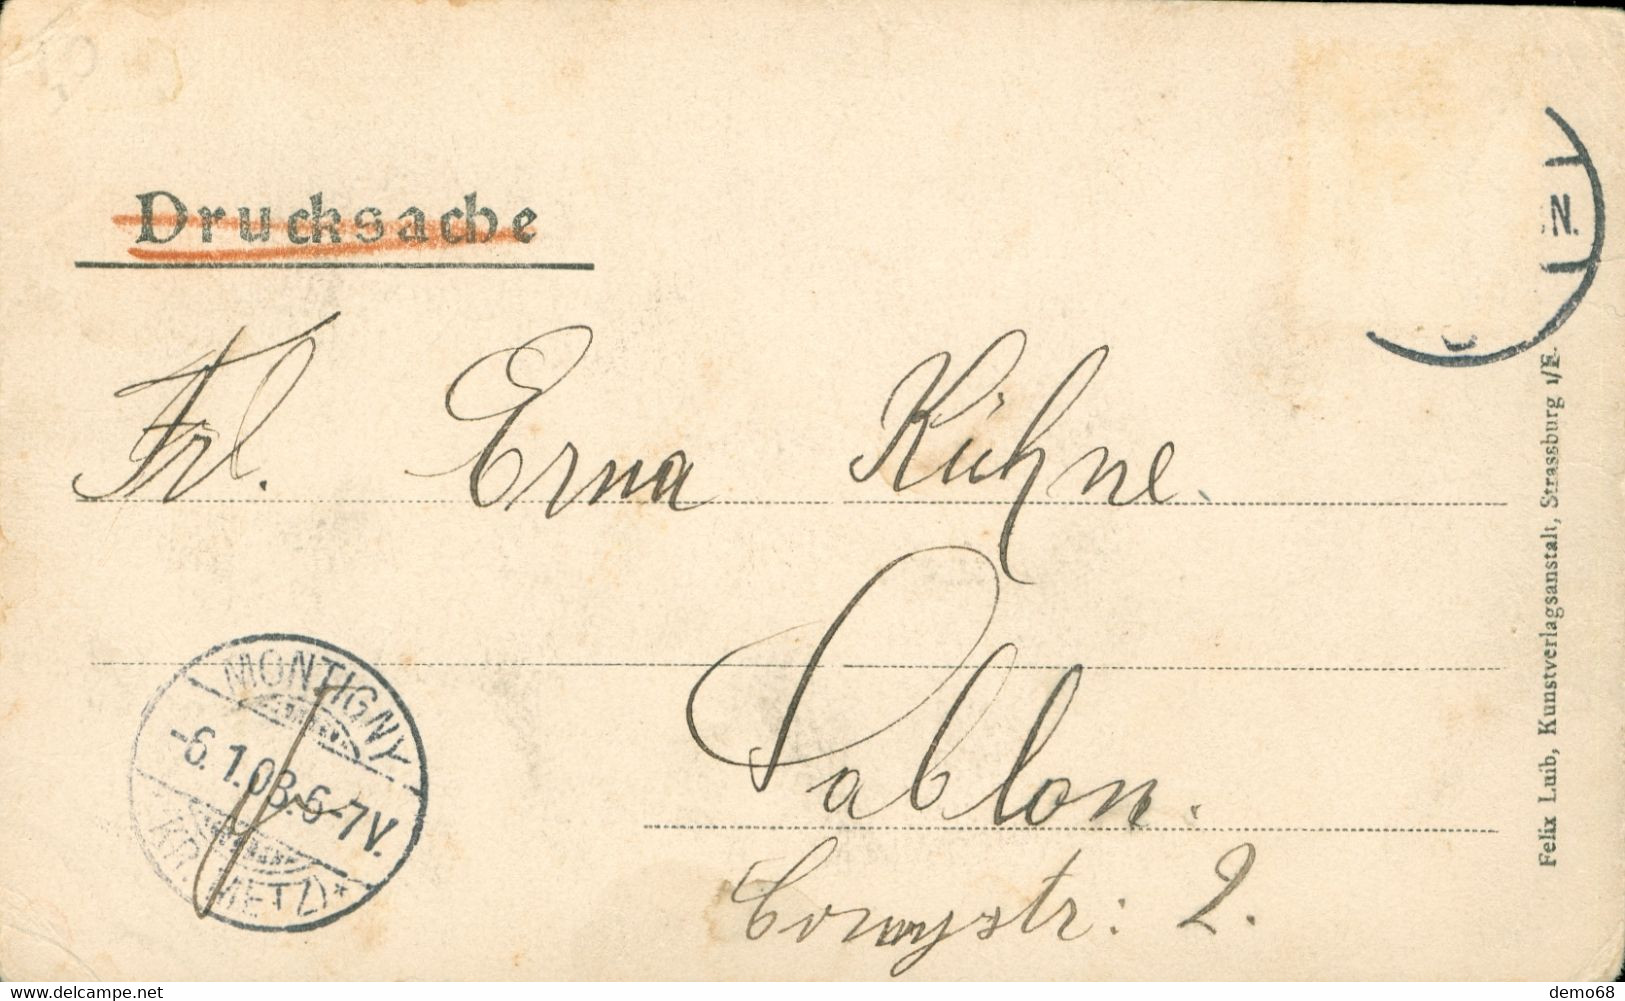 Drucksache
N.
Frl. Erna Kühne.
Sablon.
2.
MONTIGNY
-6.1.03.6-7V.
(KR. METZ)*
Felix Luib, Kunstverlagsanstalt, Strassburg i/E.
https://www.delcampe.net
demo68